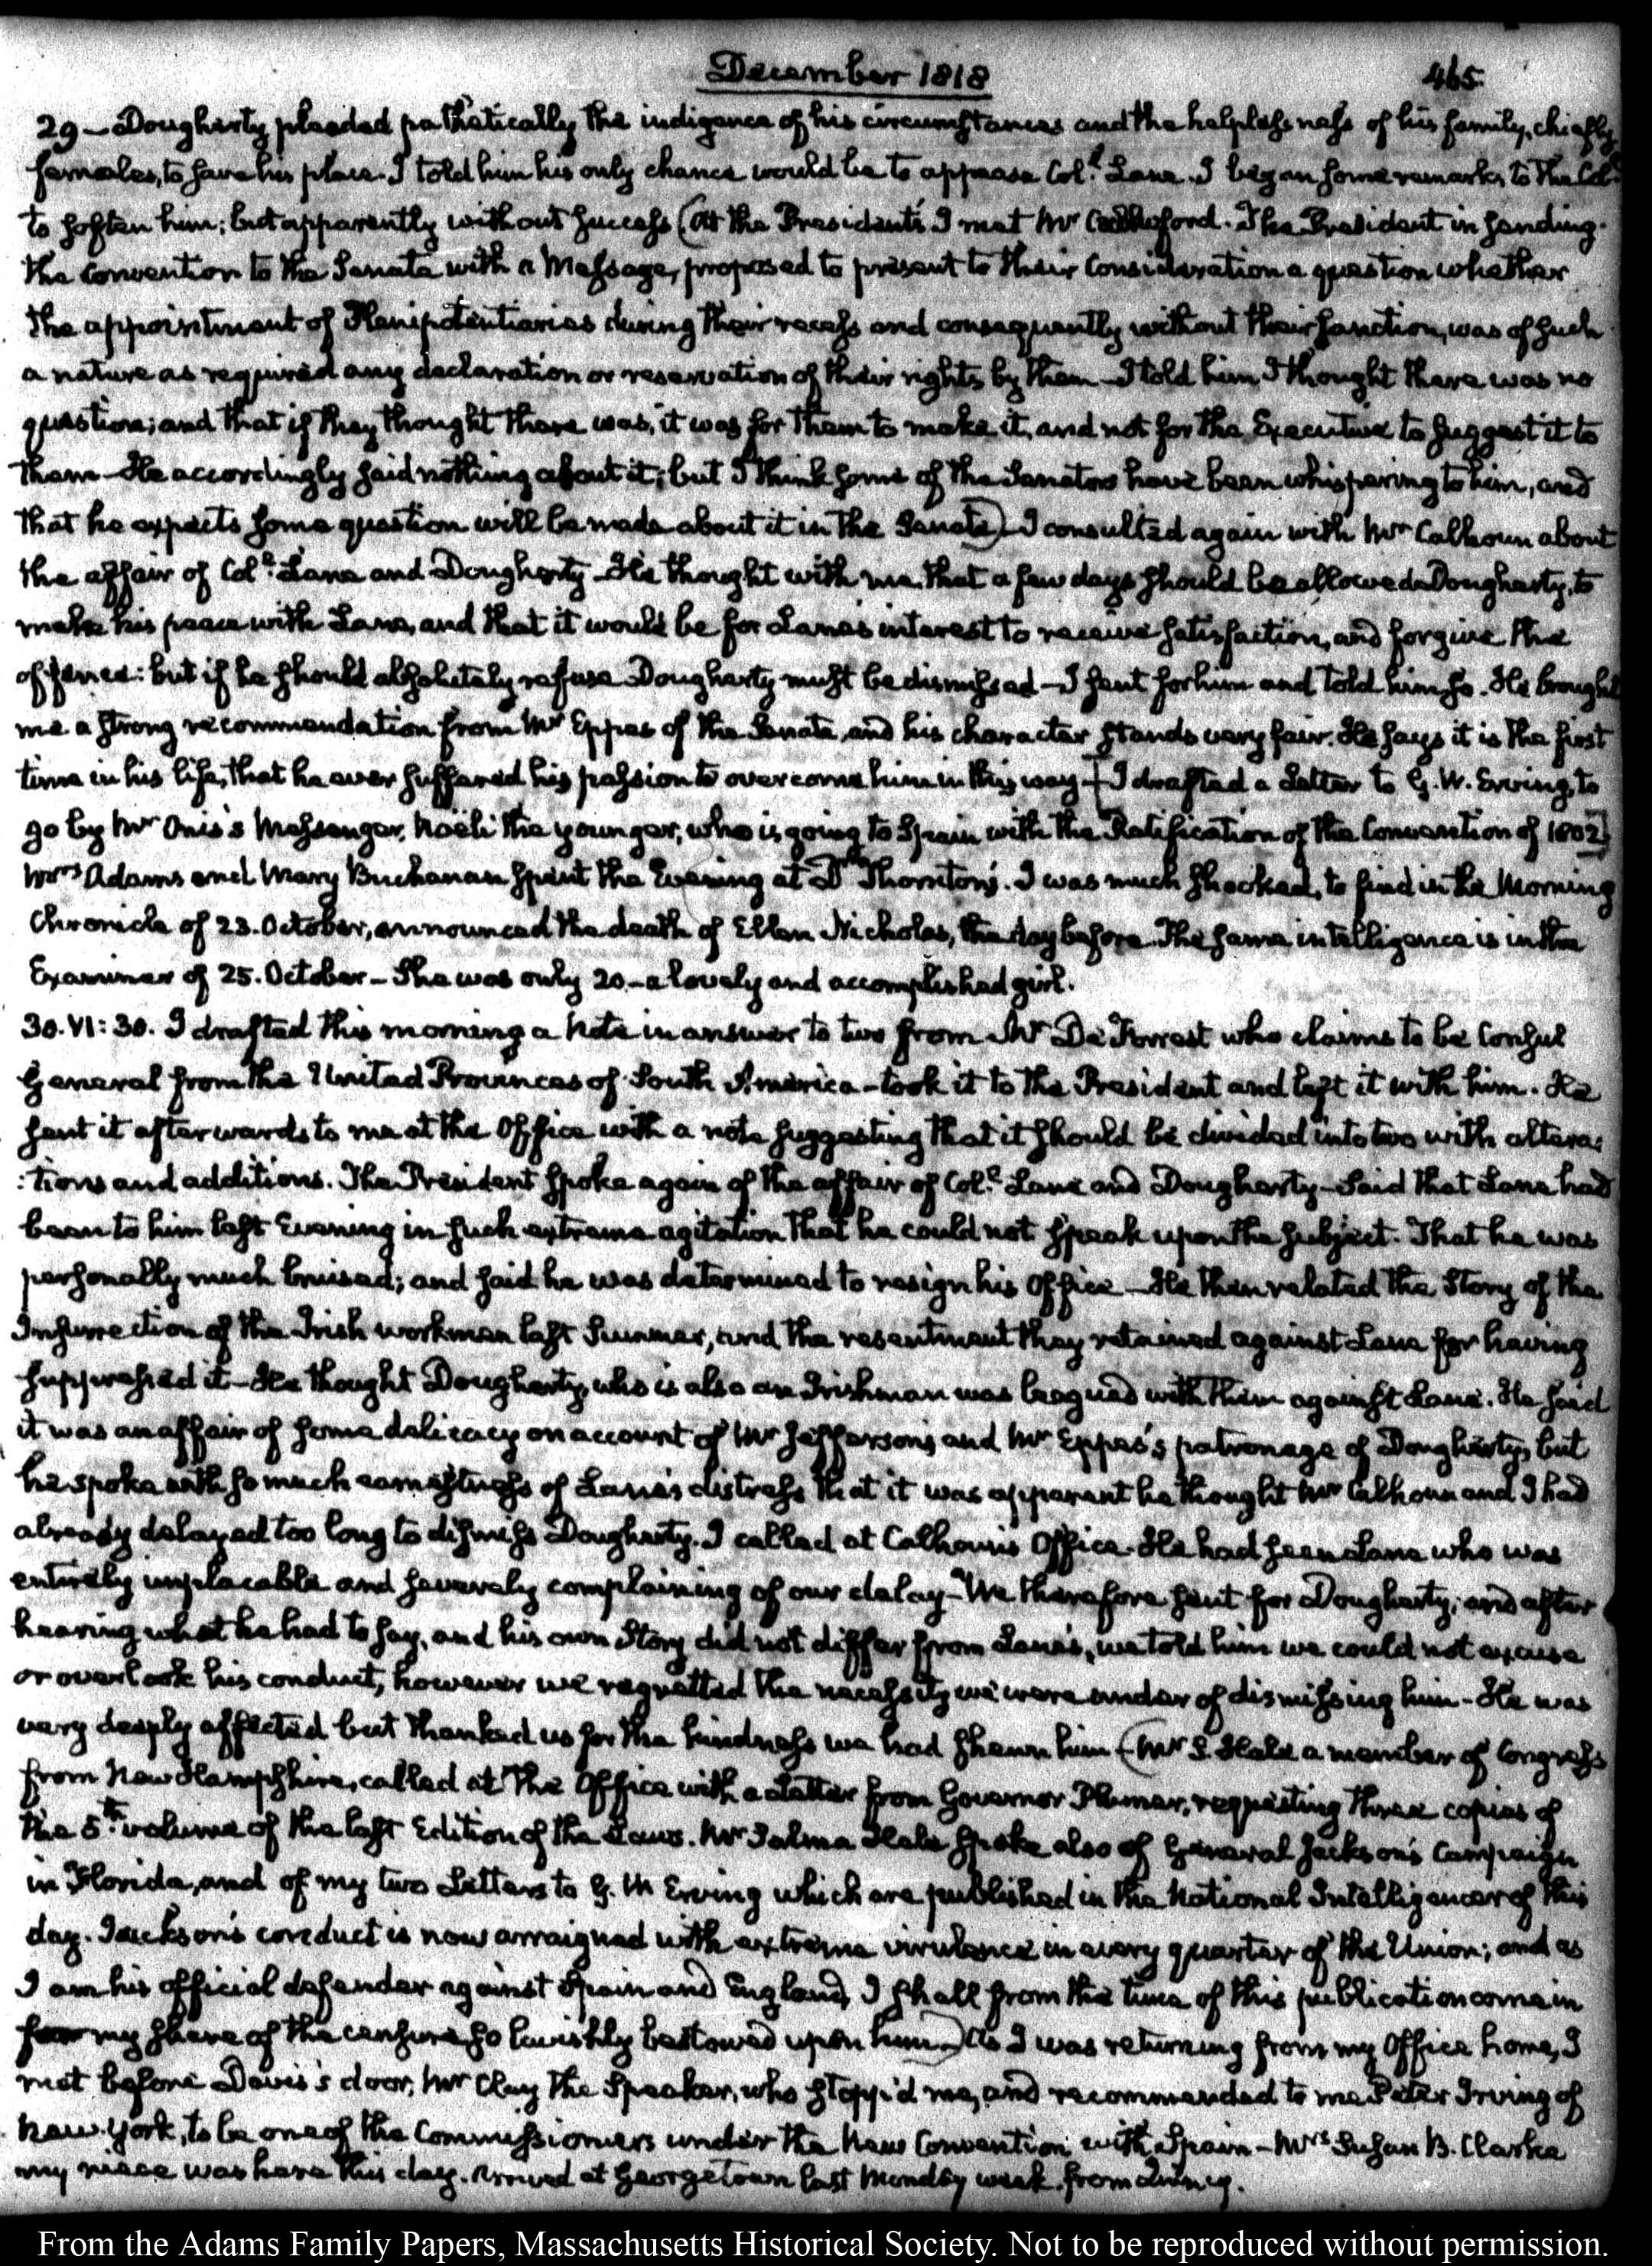 December 1818
465.
29 – Dougherty pleaded pathetically the indigence of his circumstances and the helplessness of his family, chiefly
females, to save his place. I told him his only chance would be to appease Coll. Lane. I began some remarks to the Coll.
to soften him; but apparently without success (At the President's I met Mr Crawford. The President in sending
the Convention to the Senate with a Message, proposed to present to their Consideration a question whether
the appointment of Plenipotentiaries during their recess and consequently without their sanction, was of such
a nature as required any declaration or reservation of their rights by them – I told him I thought there was no
question; and that if they thought there was, it was for them to make it, and not for the Executive to suggest it to
them – He accordingly said nothing about it; but I think some of the Senators have been whispering to him, and
that he expects some question will be made about it in the Senate) – I consulted again with Mr Calhoun about
the affair of Coll. Lane and Dougherty – He thought with me that a few days should be allowed Dougherty, to
make his peace with Lane, and that it would be for Lane's interest to receive satisfaction, and forgive the
offence: but if he should absolutely refuse Dougherty must be dismissed – I sent for him and told him so. He brought
me a strong recommendation from Mr Eppes of the Senate, and his character stands very fair. He says it is the first
time in his life, that he ever suffered his passion to overcome him in this way – [I drafted a Letter to G. W. Erving, to
go by Mr Onis's Messenger, Noëli the younger, who is going to Spain with the Ratification of the Convention of 1802]
Mrs Adams and Mary Buchanan spent the Evening at Dr Thornton's. I was much shocked, to find in the Morning
Chronicle of 23. October, announced the death of Ellen Nicholas, the day before. The same intelligence is in the
Examiner of 25. October – She was only 20 – a lovely and accomplished girl.
30. VI: 30. I drafted this morning a Note in answer to two from Mr De Forrest who claims to be Consul
General from the United Provinces of South America – took it to the President and left it with him. He
sent it afterwards to me at the Office with a note suggesting that it should be divided into two with altera:
:tions and additions. The President spoke again of the affair of Coll. Lane and Dougherty – Said that Lane had
been to him last Evening in such extreme agitation that he could not speak upon the subject. That he was
personally much bruised; and said he was determined to resign his Office – He then related the Story of the
Insurrection of the Irish workmen last Summer, and the resentment they retained against Lane for having
suppressed it – He thought Dougherty, who is also an Irishman was leagued with them against Lane. He said
it was an affair of some delicacy on account of Mr Jefferson's and Mr Eppes's patronage of Dougherty, but
he spoke with so much earnestness of Lane's distress that it was apparent he thought Mr Calhoun and I had
already delayed too long to dismiss Dougherty. I called at Calhoun's Office. He had seen Lane who was
entirely implacable and severely complaining of our delay – We therefore sent for Dougherty; and after
hearing what he had to say, and his own Story did not differ from Lane's, we told him we could not excuse
or overlook his conduct, however we regretted the necessity we were under of dismissing him – He was
very deeply affected but thanked us for the kindness we had shewn him – (Mr S. Hale a member of Congress
from New Hampshire, called at the Office with a Letter from Governor Plumer, requesting three copies of
the 5th volume of the last Edition of the Laws. Mr Salma Hale spoke also of General Jackson's Campaign
in Florida, and of my two Letters to G. W Erving which are published in the National Intelligencer of this
day. Jackson's conduct is now arraigned with extreme virulence in every quarter of the Union; and as
I am his official defender against Spain and England, I shall from the time of this publication come in
for my share of the censure so lavishly bestowed upon him –) As I was returning from my Office home, I
met before Davis's door, Mr Clay the Speaker, who stopp'd me, and recommended to me Peter Irving of
New York, to be one of the Commissioners under the New Convention with Spain – Mrs Susan B. Clarke
my niece was here this day. Arrived at Georgetown last Monday week from Quincy.
From the Adams Family Papers, Massachusetts Historical Society. Not to be reproduced without permission.